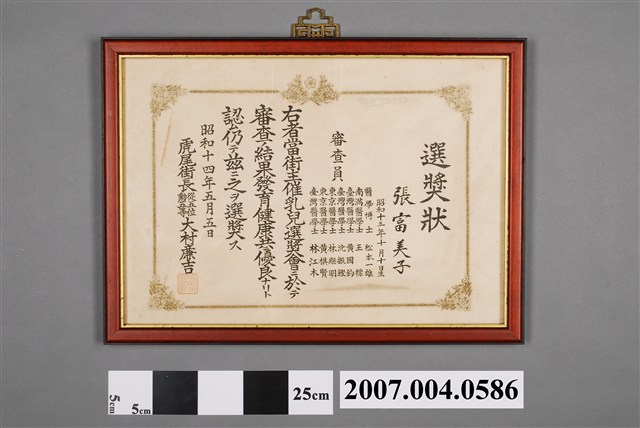 選奬狀
張富美子
昭和十三年十月十日生
審查員
醫學博士 松本一雄
南滿醫學士 王標
臺灣醫學士 黃國鈞
臺灣醫學士
東京醫學士 林
東京醫學士 黃棋賢
臺灣醫學士 林江木
右者當街主催乳兒選奬會ニ於テ
審查ノ結果發育健康共ニ優良ナリト
認ム仍テ茲ニ之ヲ選奬ス
昭和十四年五月五日
虎尾街長 從五位 勳五等 大村廉吉
5cm
5cm
25cm
2007.004.0586